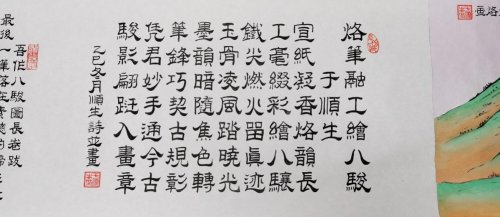 烙筆融工繪八駿
于順生
宣紙凝香烙韻長
工毫綴彩繪八驤
鐵尖燃火留眞迹
玉骨凌風踏曉光
墨韻暗隨焦色轉
筆鋒巧契古規彰
凭君妙手通今古
駿影翩跹入畫章
乙巳冬月順生詩並畫
吾佐八駿圖長卷跋
最後一筆落在